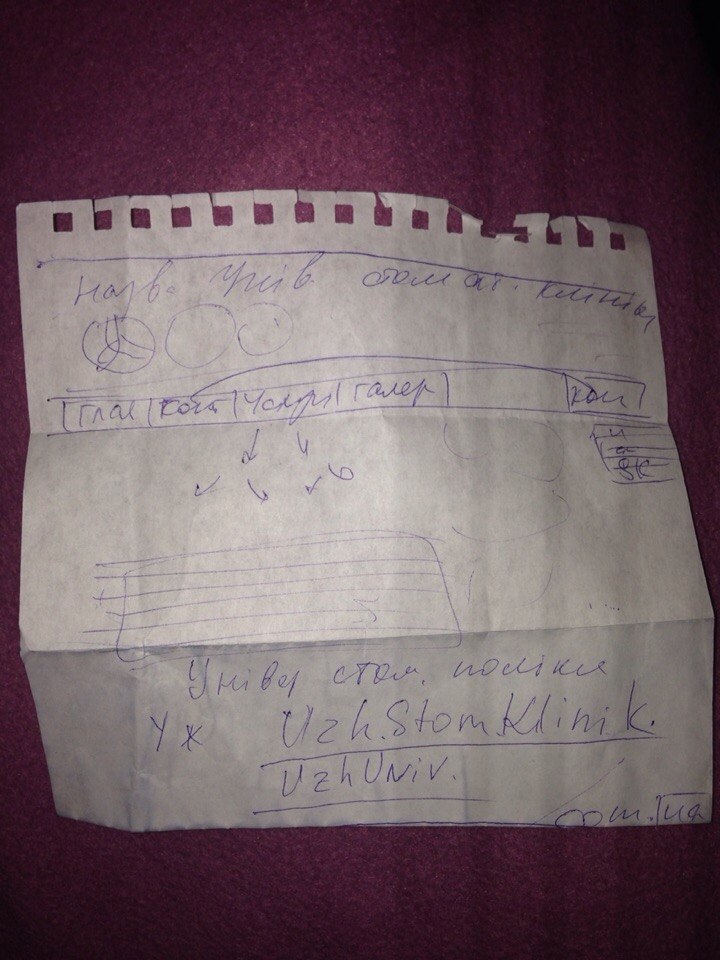 Назв. Унів. стомат. клініки
Глав Конт Услуги Галер Кон
Універ стом. поліклі
Уж Uzh.Stom.Klinik.
UzhUniv.
com.ua